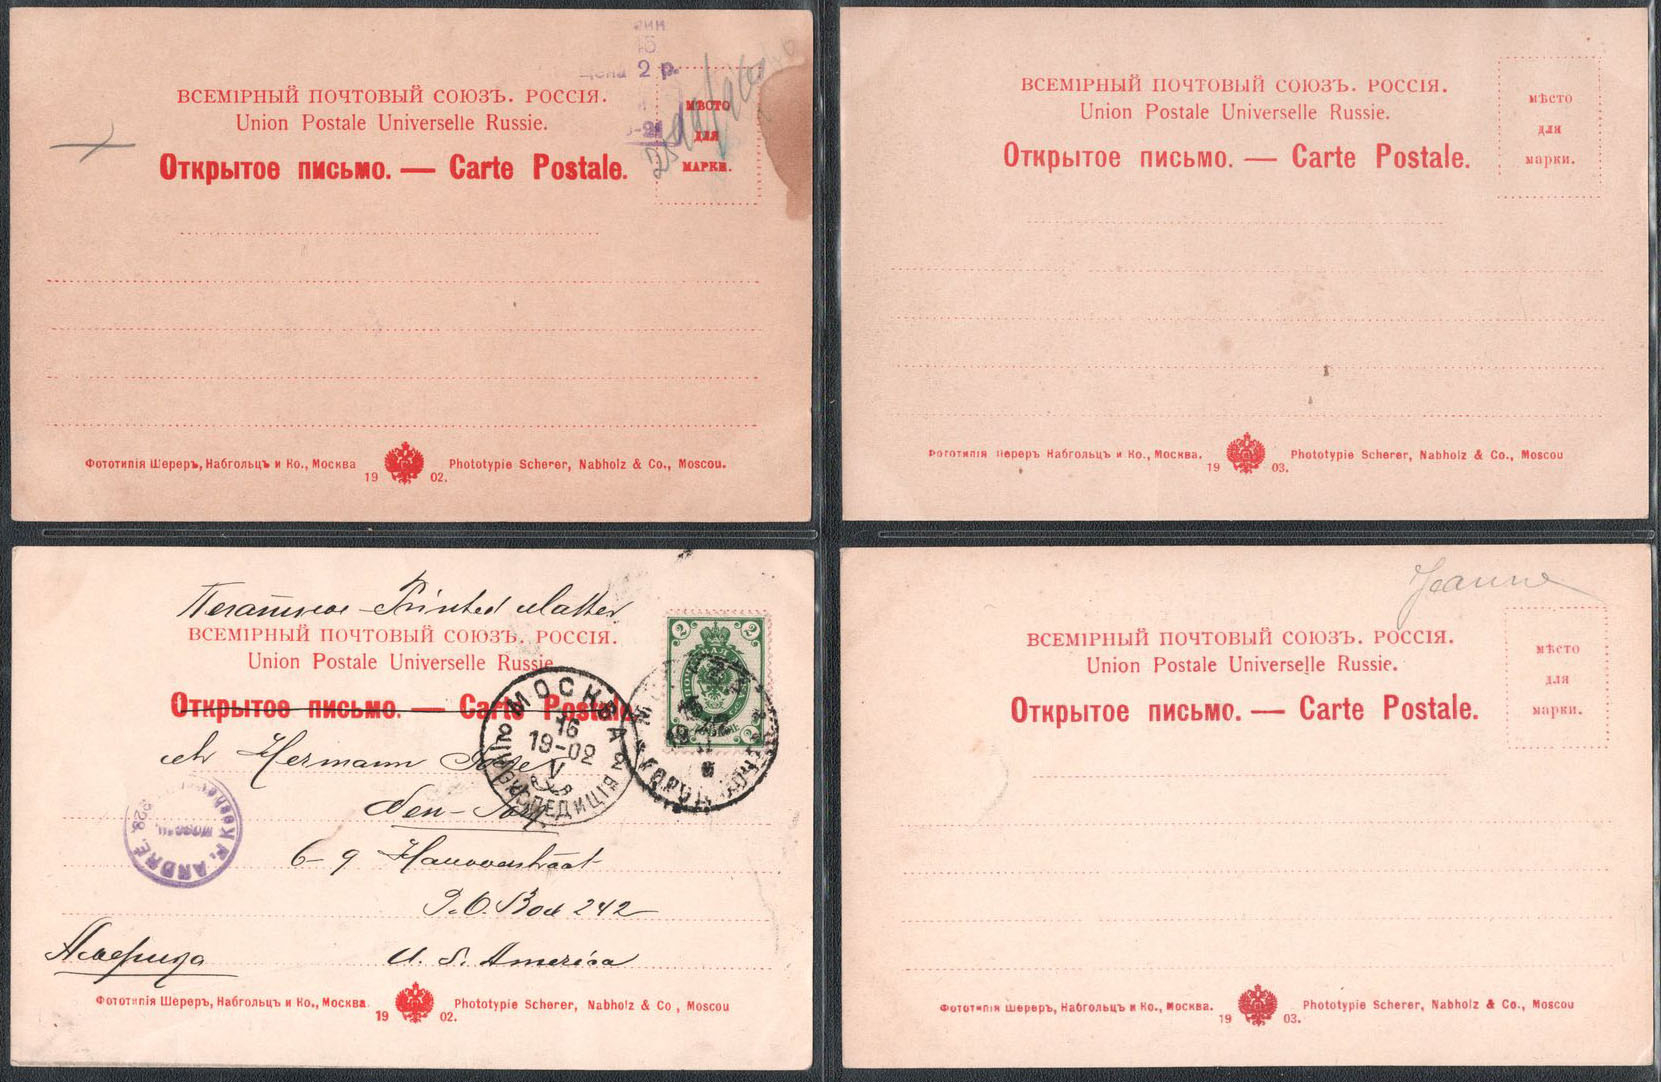 Цена 2 р.
ВСЕМІРНЫЙ ПОЧТОВЫЙ СОЮЗЪ. РОССІЯ.
Union Postale Universelle Russie.
Открытое письмо. — Carte Postale.
МѢСТО
ДЛЯ
МАРКИ.
Фототипія Шереръ, Набгольцъ и Ко., Москва
Phototypie Scherer, Nabholz & Co., Moscou.
19 02.
ВСЕМІРНЫЙ ПОЧТОВЫЙ СОЮЗЪ. РОССІЯ.
Union Postale Universelle Russie.
Открытое письмо. — Carte Postale.
мѣсто
для
марки.
Фототипія Шереръ Набгольцъ и Ко., Москва.
Phototypie Scherer, Nabholz & Co., Moscou
19 03.
Печатное – Printed Matter
ВСЕМІРНЫЙ ПОЧТОВЫЙ СОЮЗЪ. РОССІЯ.
Union Postale Universelle Russie.
Открытое письмо. — Carte Postale.
2 2
МОСКВА
16
19-02
V
ЭКСПЕДИЦІЯ
Hermann
New-York
ANDRÉ
Moscou.
6–9 Hanoverstraat
P.O. Box 242
Америка
U. S. America
Фототипія Шереръ, Набгольцъ и Ко., Москва.
Phototypie Scherer, Nabholz & Co, Moscou
19 02.
Jeanne
ВСЕМІРНЫЙ ПОЧТОВЫЙ СОЮЗЪ. РОССІЯ.
Union Postale Universelle Russie.
Открытое письмо. — Carte Postale.
мѣсто
для
марки.
Фототипія Шереръ, Набгольцъ и Ко., Москва.
Phototypie Scherer, Nabholz & Co., Moscou
19 03.